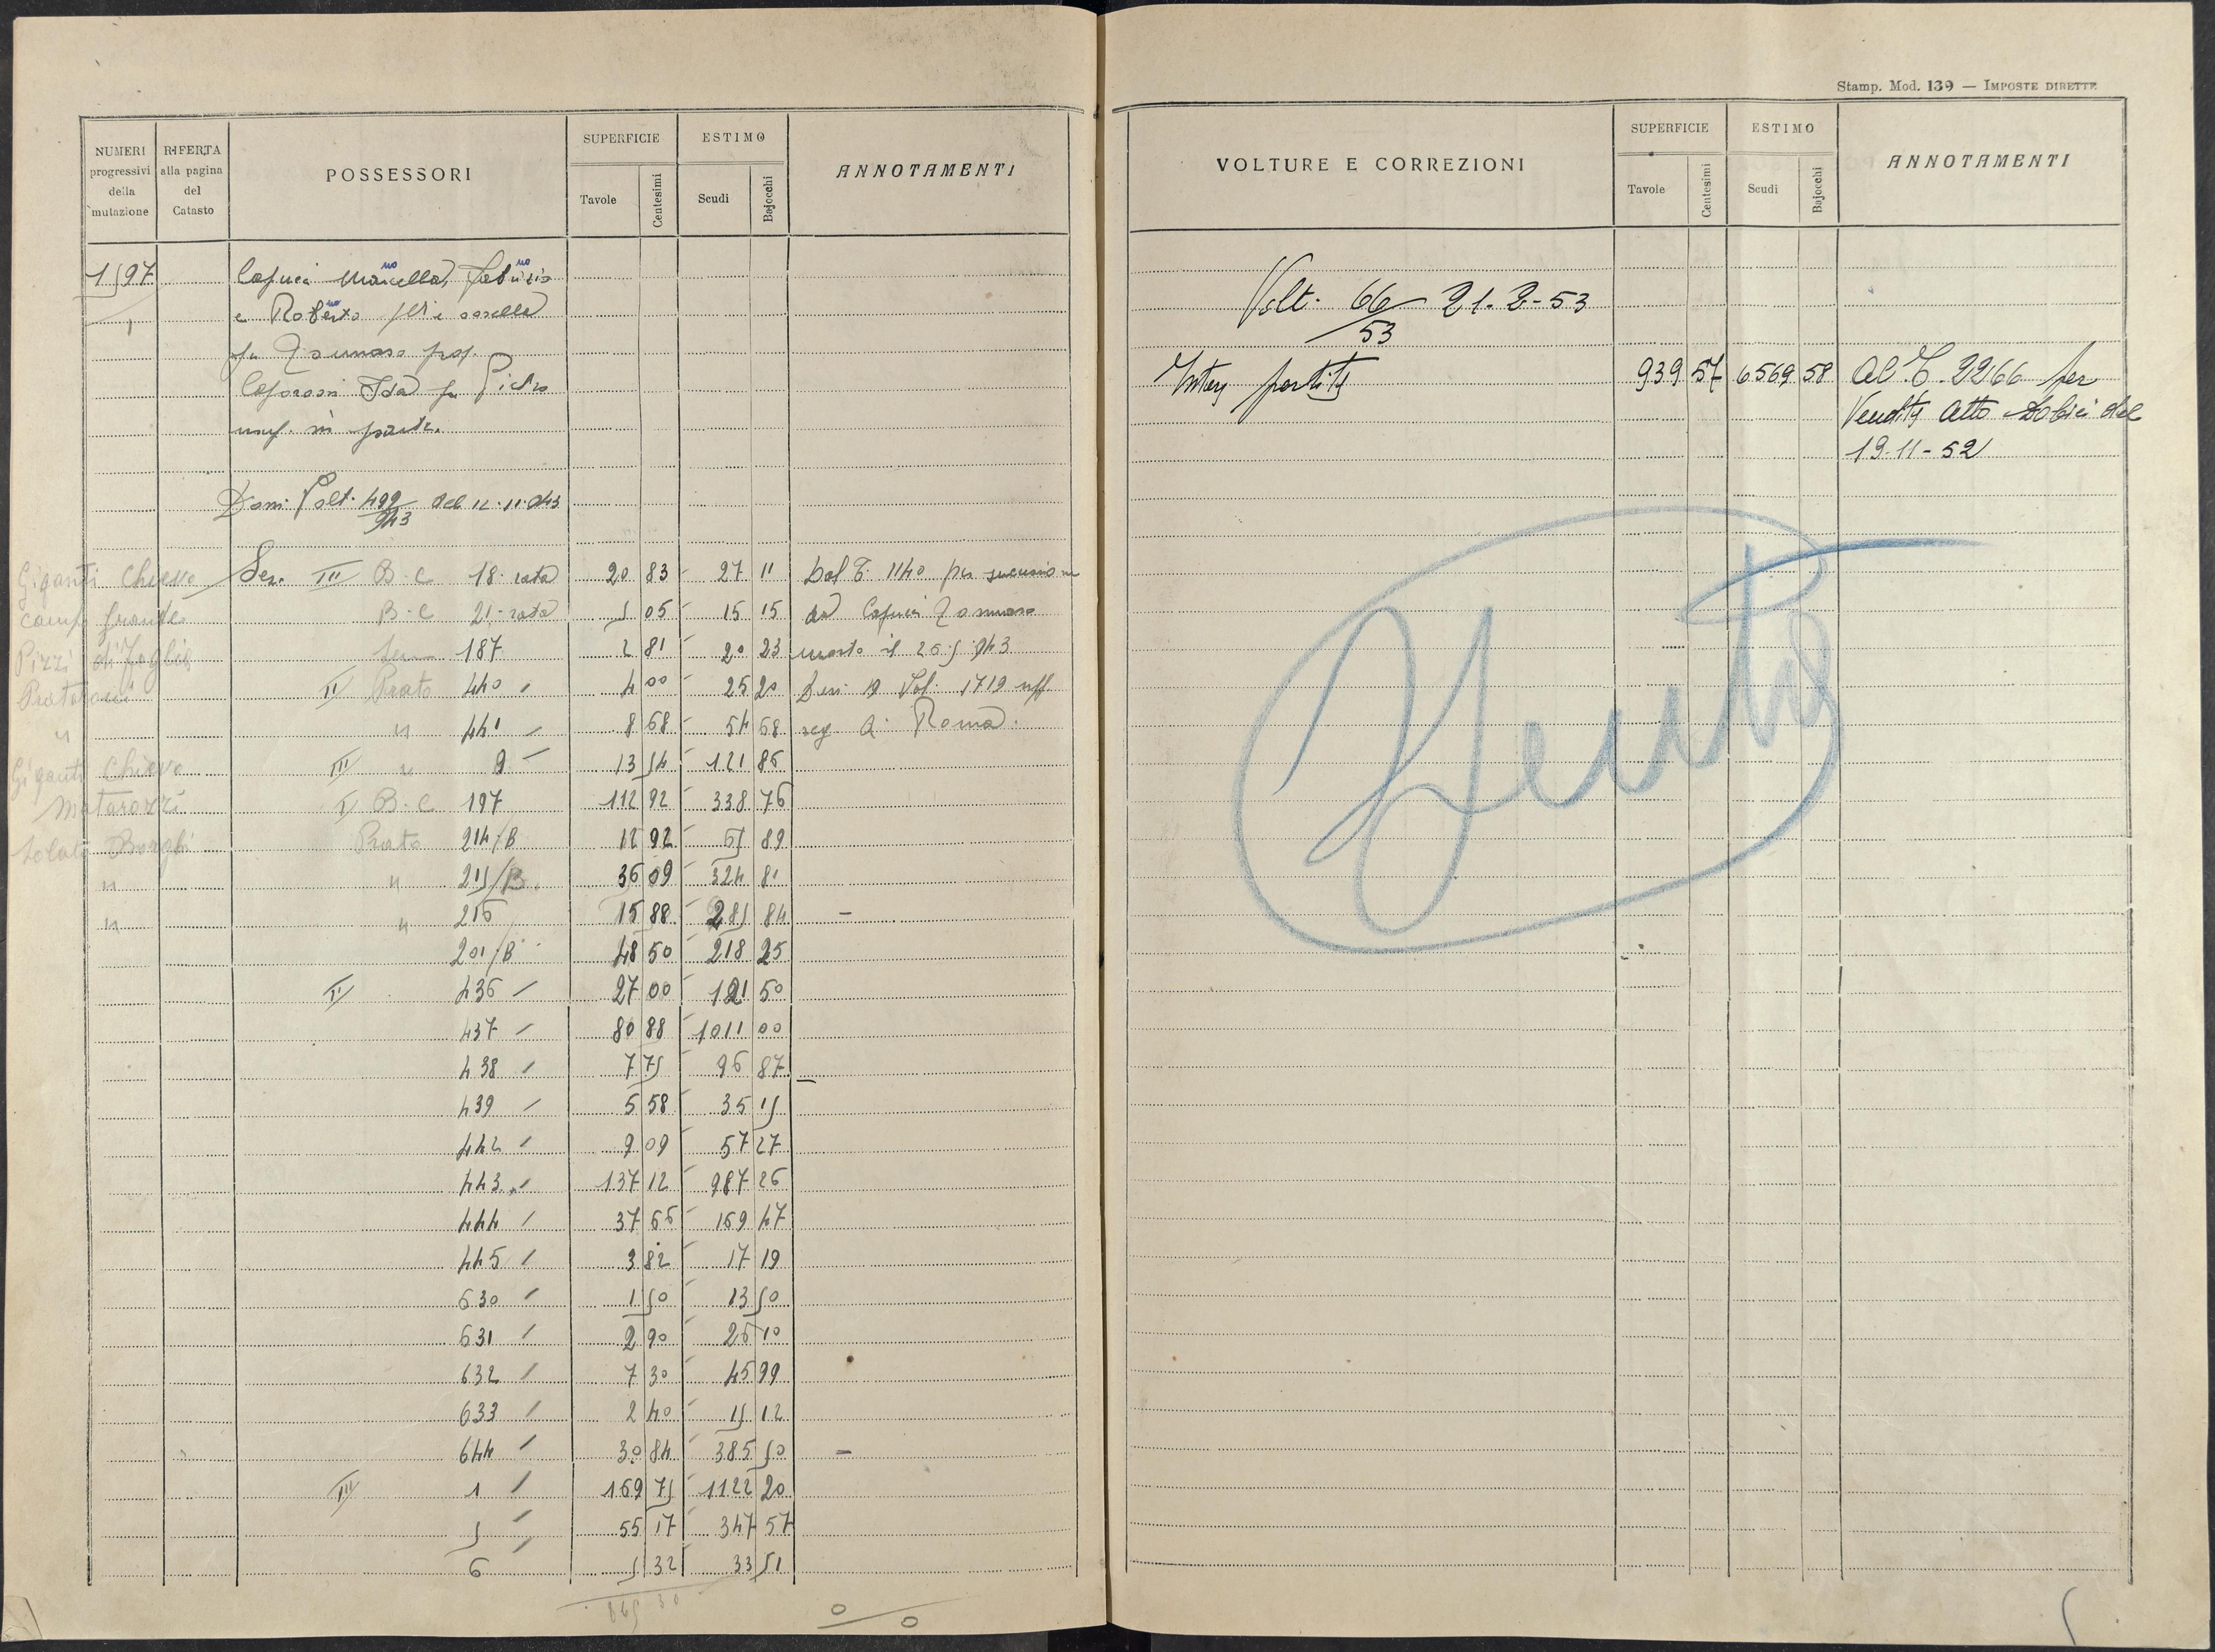 Stamp. Mod. 139 — IMPOSTE DIRETTE
NUMERI progressivi della mutazione
RIFERTA alla pagina del Catasto
POSSESSORI
SUPERFICIE
Tavole
Centesimi
ESTIMO
Scudi
Bajocchi
ANNOTAMENTI
1597 Capuci Marcella, Fabrizio
e Roberto f.lli e sorella
fu Tommaso prop.
Caporossi Ida fu Pietro
usuf. in parte.
Dom. Volt. 499/943 del 12.11.943
Giganti Chiuse Sez. III B.C 18 rata 20 83 27 11 Dal T. 1140 per successione
Camp Grande B.C 21 rata 5 05 15 15 da Capuci Tommaso
Pizzi di Foglia Sem 187 2 81 20 23 morto il 26.5.943
II Prato 440 4 00 25 20 Den 19 Vol. 1719 uff.
" " 441 8 68 54 68 reg A. Roma.
Giganti Chiuse III " 9 13 54 121 86
Matarozzi I B.C 197 112 92 338 76
Prato 214/B 12 92 65 89
" " 215/B 36 09 324 81
" " 216 15 88 285 84
201/B 48 50 218 25
II 436 27 00 121 50
437 80 88 1011 00
438 7 75 96 87
439 5 58 35 15
442 9 09 57 27
443 137 12 987 26
444 37 66 169 47
445 3 82 17 19
630 1 50 13 50
631 2 90 26 10
632 7 30 45 99
633 2 40 15 12
644 30 84 385 50
III 1 169 75 1122 20
5 55 17 347 57
6 5 32 33 51
VOLTURE E CORREZIONI
SUPERFICIE
Tavole
Centesimi
ESTIMO
Scudi
Bajocchi
ANNOTAMENTI
Volt. 66/53 21-2-53
Intera partita 939 57 6569 58 Al T. 2266 per
Vendita atto del
19-11-52